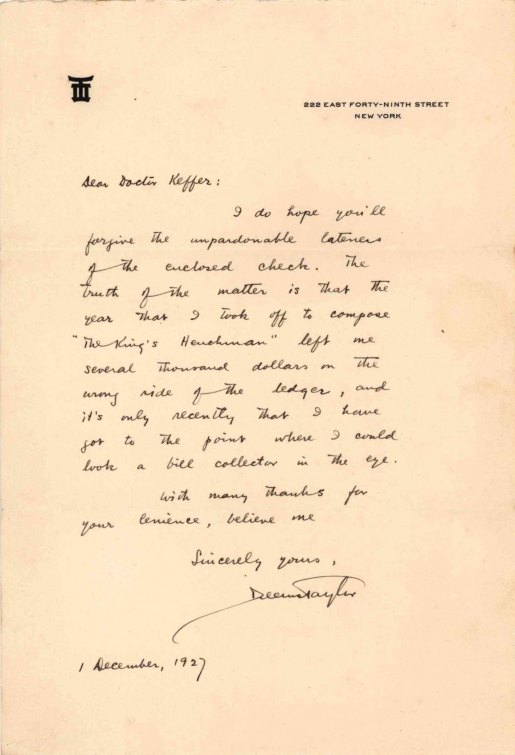 222 EAST FORTY-NINTH STREET
NEW YORK
Dear Doctor Keffer:
I do hope you'll
forgive the unpardonable lateness
of the enclosed check. The
truth of the matter is that the
year that I took off to compose
"The King's Henchman" left me
several thousand dollars on the
wrong side of the ledger, and
it's only recently that I have
got to the point where I could
look a bill collector in the eye.
With many thanks for
your lenience, believe me
Sincerely yours,
Deems Taylor
1 December, 1927